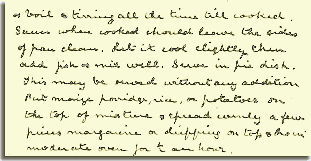 & boil stirring all the time till cooked.
Sauce when cooked should leave the sides
of pan clean. Let it cool slightly then
add fish & mix well. Serve in pie dish.
This may be served without any addition
Put maize porridge, rice, or potatoes on
the top of mixture & spread evenly a few
pieces margarine or dripping on top & brown
moderate oven for ½ an hour.